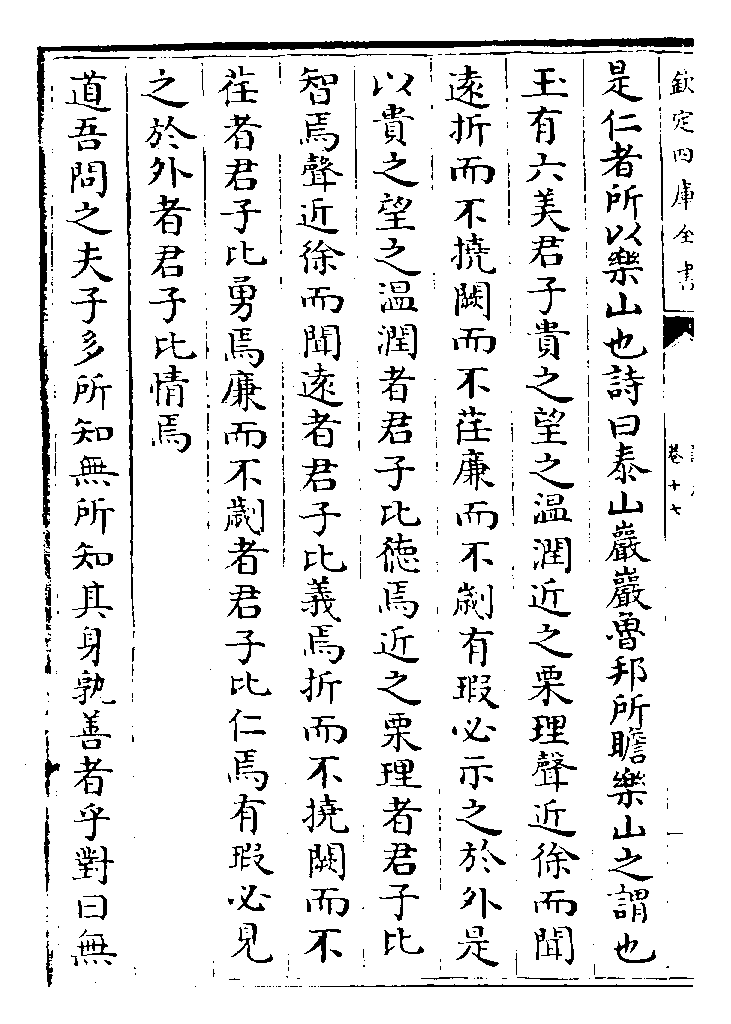 欽定四庫全書
卷十七
是仁者所以樂山也詩曰泰山巖巖魯邦所瞻樂山之謂也
玉有六美君子貴之望之温潤近之栗理聲近徐而聞
遠折而不撓闕而不荏廉而不劌有瑕必示之於外是
以貴之望之温潤者君子比徳焉近之栗理者君子比
智焉聲近徐而聞遠者君子比義焉折而不撓闕而不
荏者君子比勇焉廉而不劌者君子比仁焉有瑕必見
之於外者君子比情焉
道吾問之夫子多所知無所知其身孰善者乎對曰無